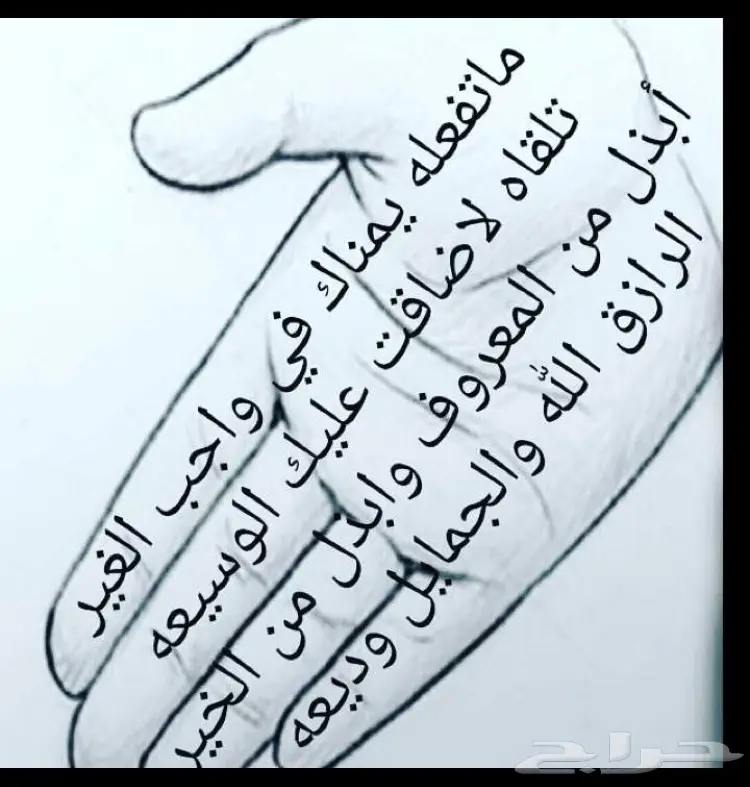 ماتفعله يمناك في واجب الغير
تلقاه لاضاقت عليك الوسيعه
أبذل من المعروف وابذل من الخير
الرازق الله والجمايل وديعه
حراج